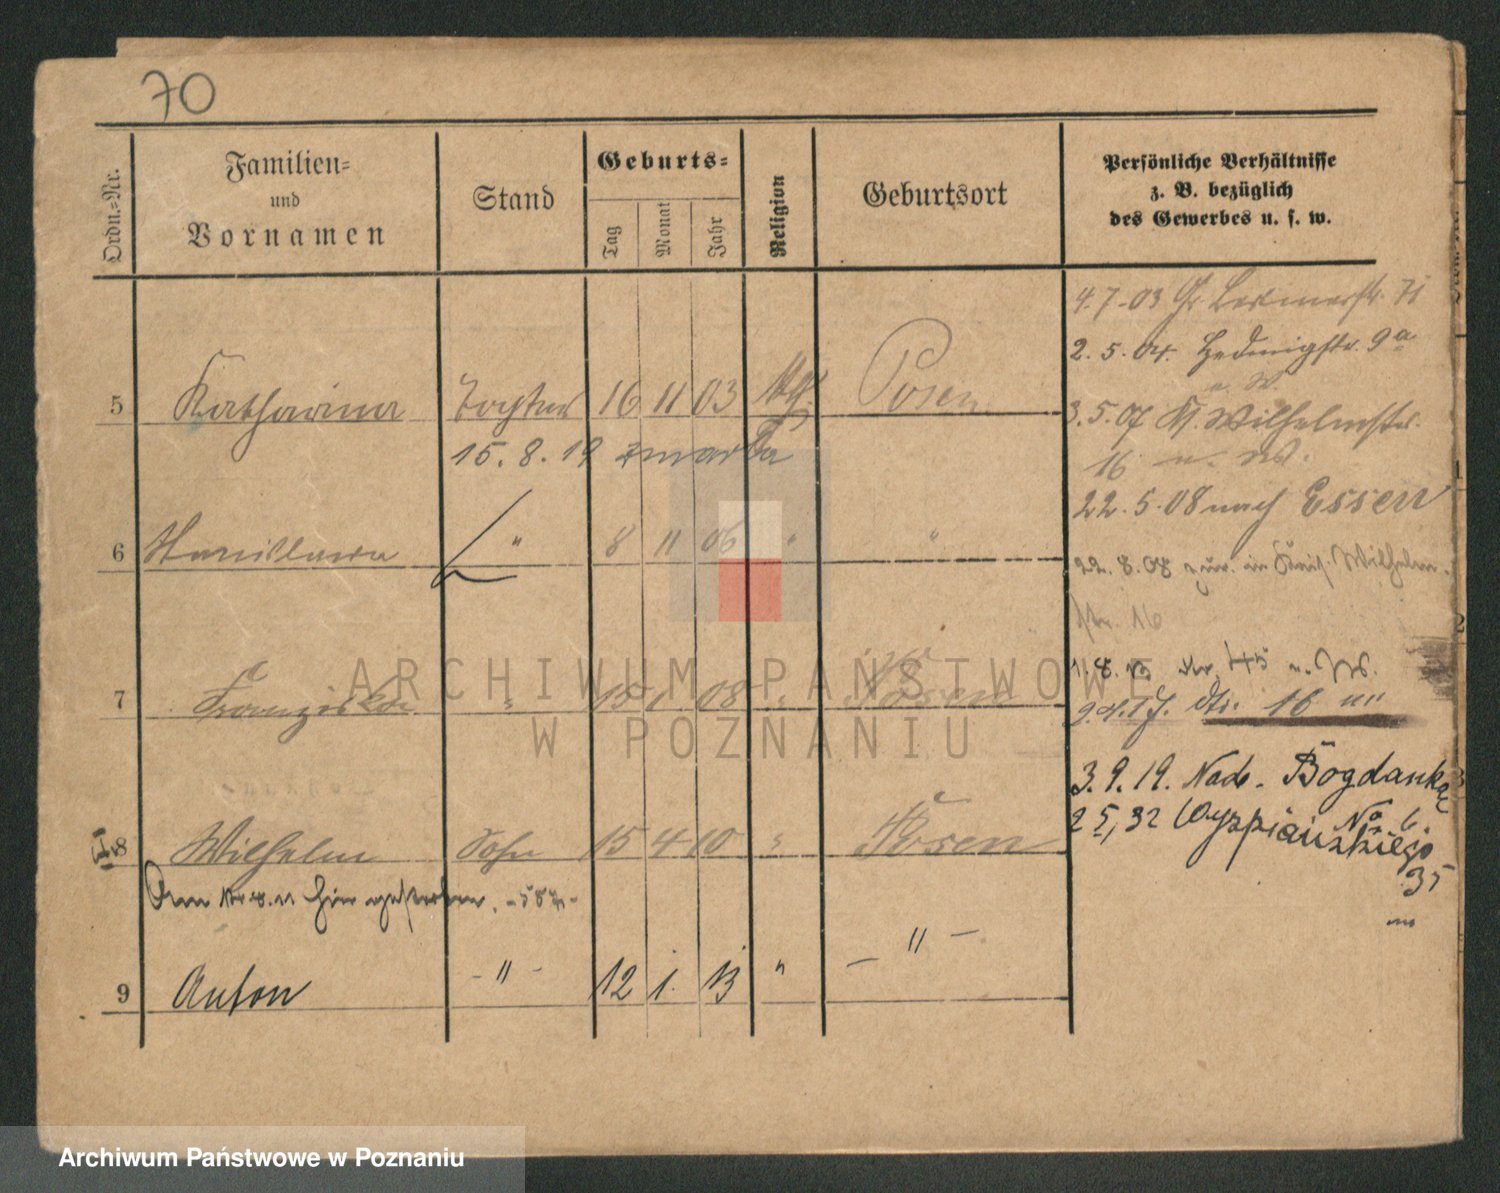 70
Ordn.-Nr.
Familien-
und
Vornamen
Stand
Geburts-
Tag
Monat
Jahr
Religion
Geburtsort
Persönliche Verhältnisse
z. B. bezüglich
des Gewerbes u. s. w.
4.7.03 Gr. Berlinerstr. 71
2.5.04. Hedwigstr. 9a
u. W.
5 Katharina Tochter 16 11 03 Posen
3.5.07 Kl. Wilhelmstr.
16 u. W.
15.8.19 zmarła
22.5.08 nach Essen
6 Stanislawa " 8 11 06 " "
22.8.08 zur. in Wilhelm-
str. 16
7 Franziska " 15 1 08 " Posen
16
3.9.19. Nad. Bogdanką
No 6.
8 Wilhelm Sohn 15 4 10 " Posen
2 5, 32 Wyspiańskiego
35
hier gestorben.
9 Anton - " - 12 1. 13 " - " -
ARCHIWUM PAŃSTWOWE
W POZNANIU
Archiwum Państwowe w Poznaniu